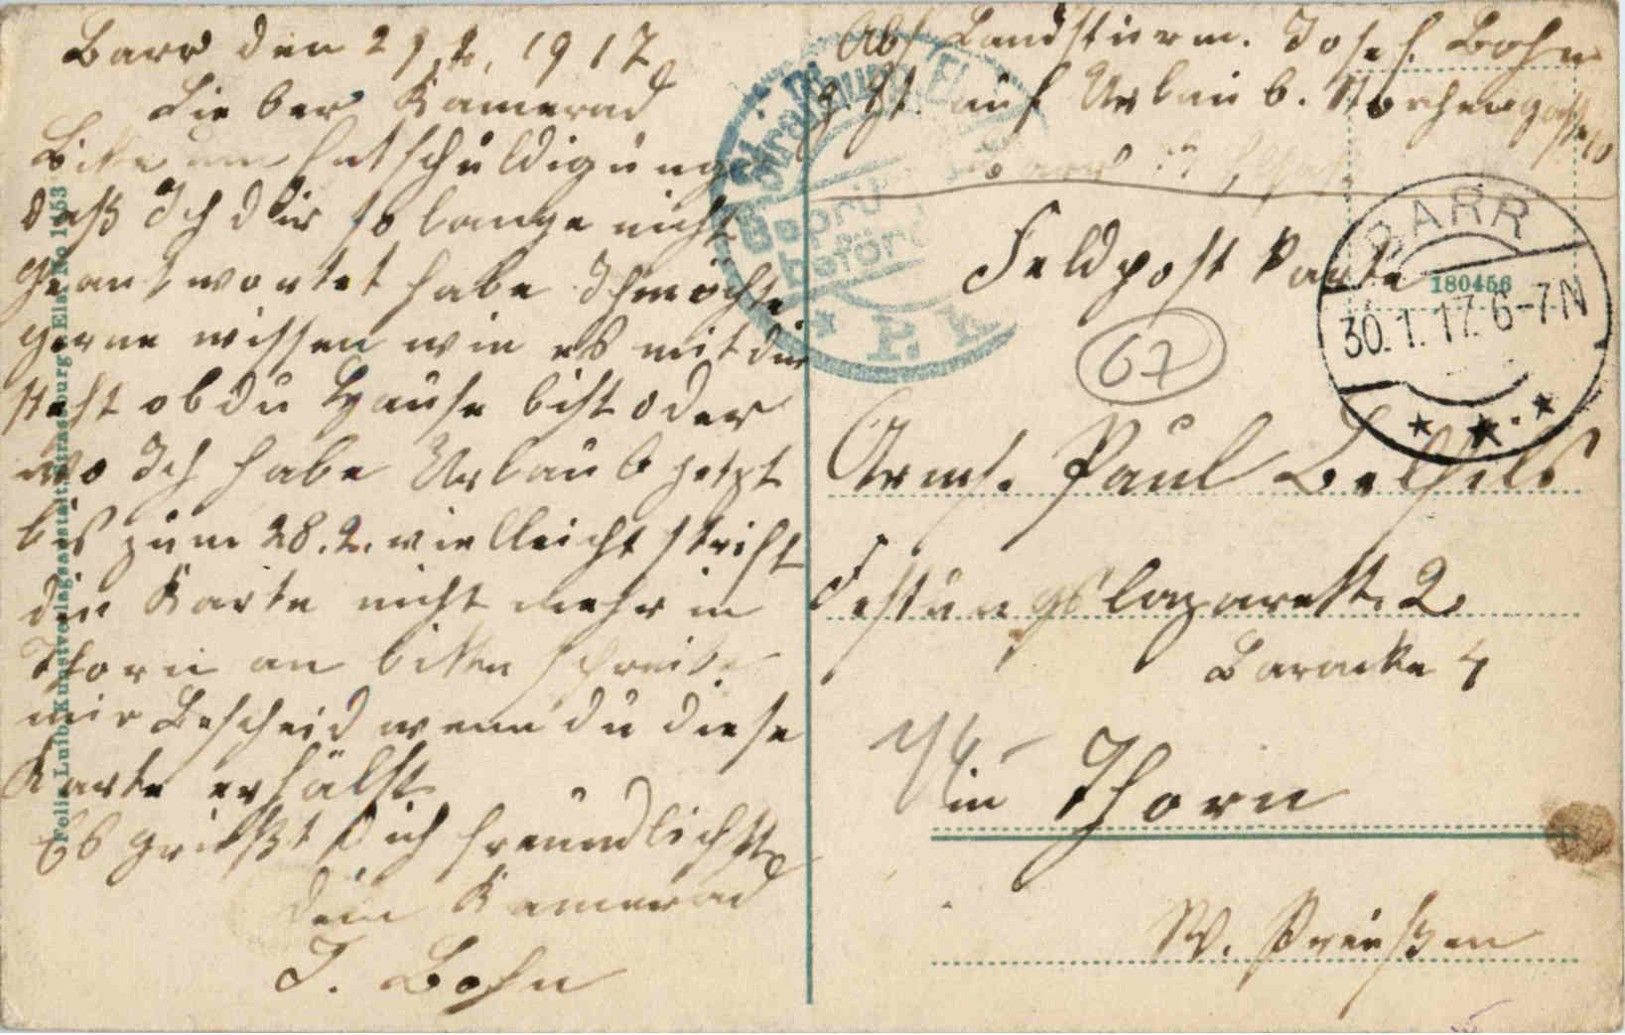 Barr den 29.1. 1917
Lieber Kamerad
Bitte um Entschuldigung
daß Ich dir so lange nicht
geantwortet habe Ich möchte
gerne wissen wie es mit dir
steht ob du Hause bist oder
wo Ich habe Urlaub jetzt
bis zum 28.2. vielleicht trifft
die Karte nicht mehr in
Thorn an bitte schreibe
mir Bescheid wenn du diese
Karte erhälst
Es grüßt Dich freundlichst
dein Kamerad
J. Bohn
Felix Luib Kunstverlagsanstalt Strassburg Els. No 1453
Abs. Landsturm. Josef. Bohn
z. Zt. auf Urlaub. Storchengasse
Barr
Geprüft
befördern
P. K.
Feldpost Karte
BARR
30.1.17. 6-7N
180456
67
Arms. Paul
Festungslazarett. 2.
Baracke
in Thorn
W. Preußen